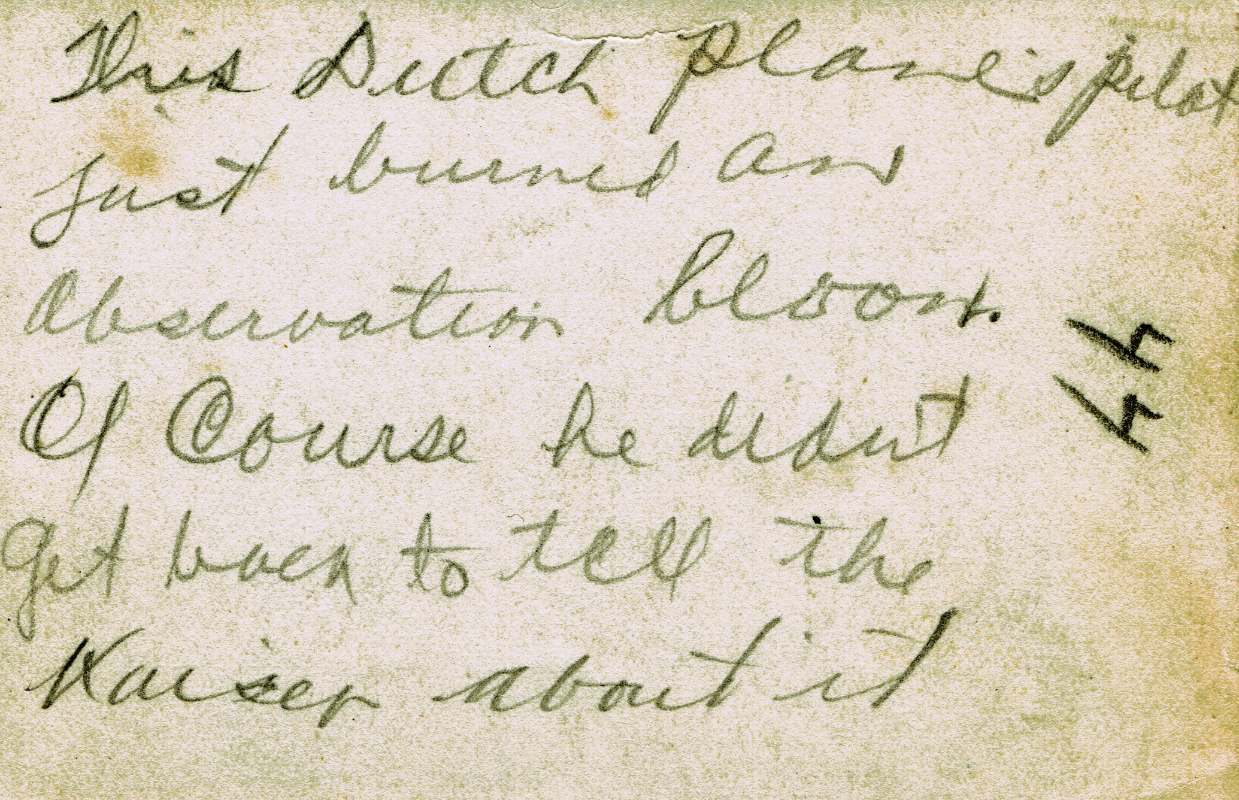 This Dutch plane's pilot
just burned an
observation bloon.
Of Course he didn't
get back to tell the
Kaiser about it
44